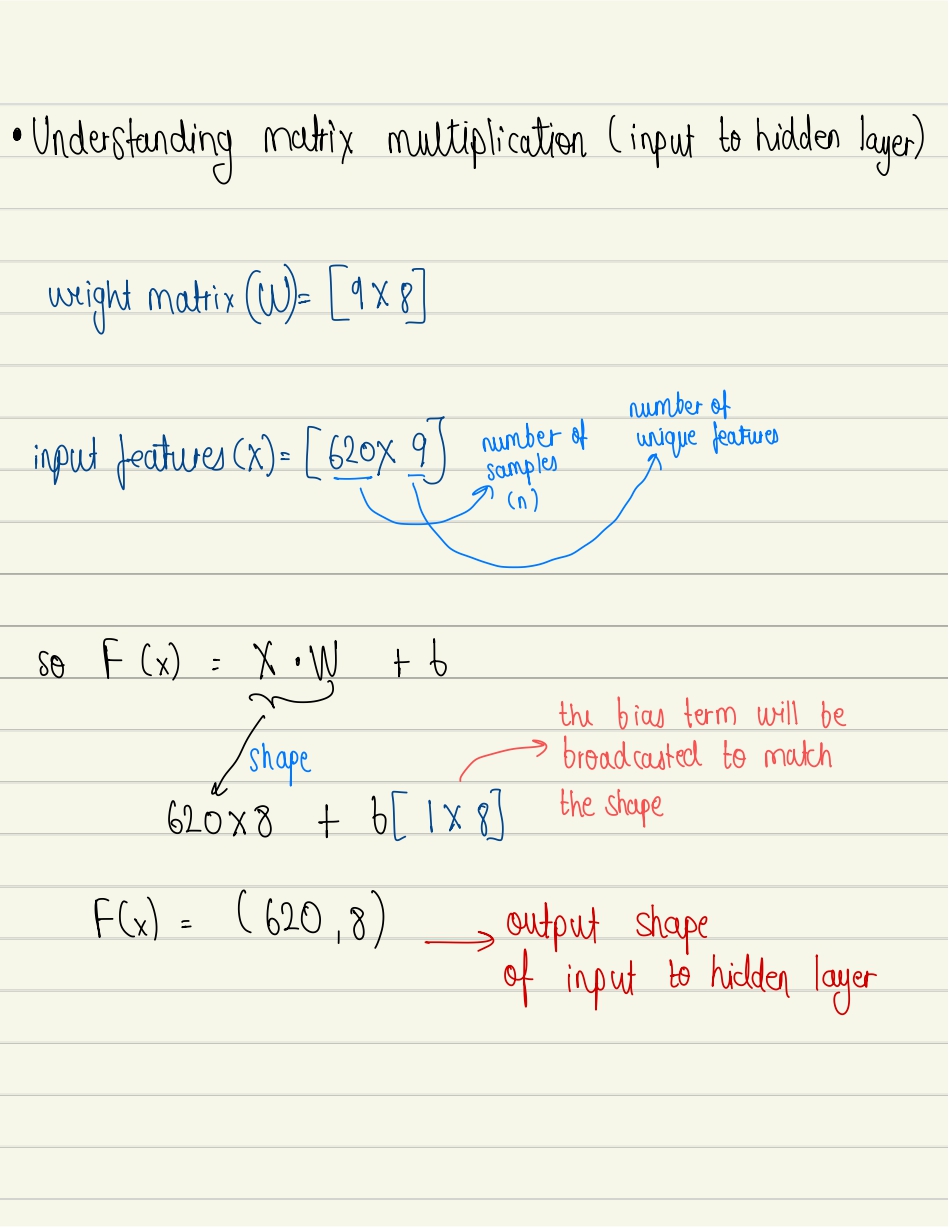 • Understanding matrix multiplication (input to hidden layer)
weight matrix (W) = [9 x 8]
input features (x) = [620 x 9]
number of
samples
(n)
number of
unique features
so F(x) = X • W + b
shape
620 x 8 + b[1 x 8]
the bias term will be
broadcasted to match
the shape
F(x) = (620, 8)
output shape
of input to hidden layer